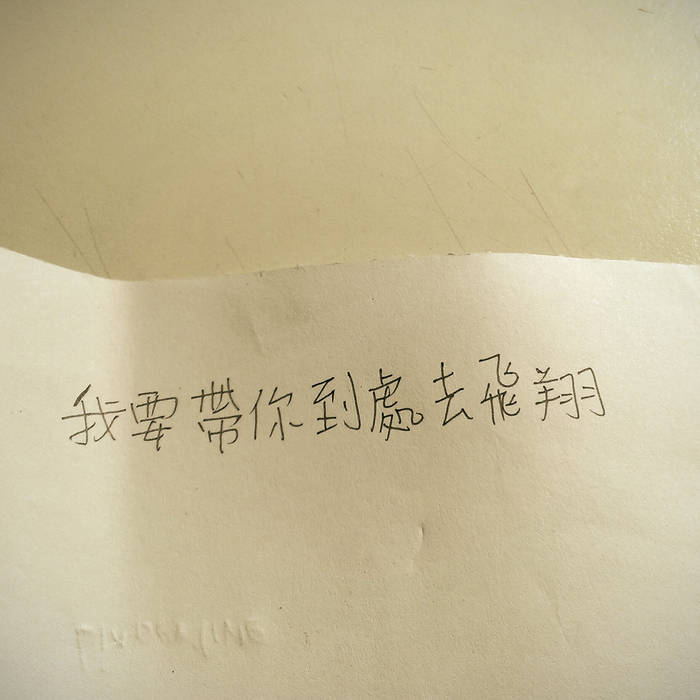 我要帶你到處去飛翔